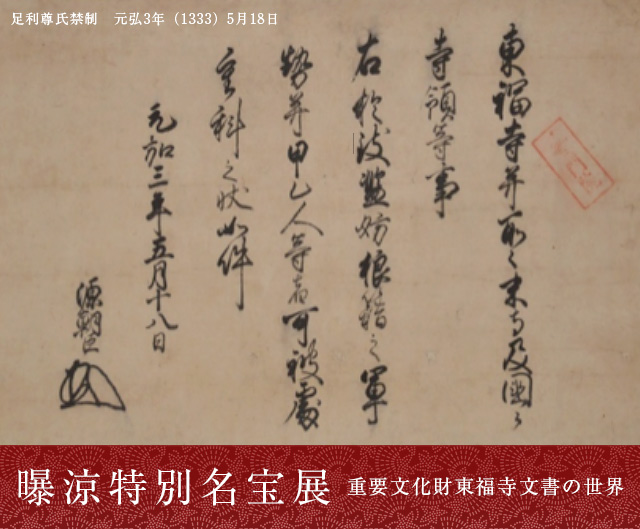 足利尊氏禁制　元弘3年（1333）5月18日
東福寺并所々末寺及國々
寺領等事
右於致濫妨狼籍之軍
勢并甲乙人等者可被處
重科之状如件
元弘三年五月十八日
源朝臣
曝涼特別名宝展 重要文化財東福寺文書の世界